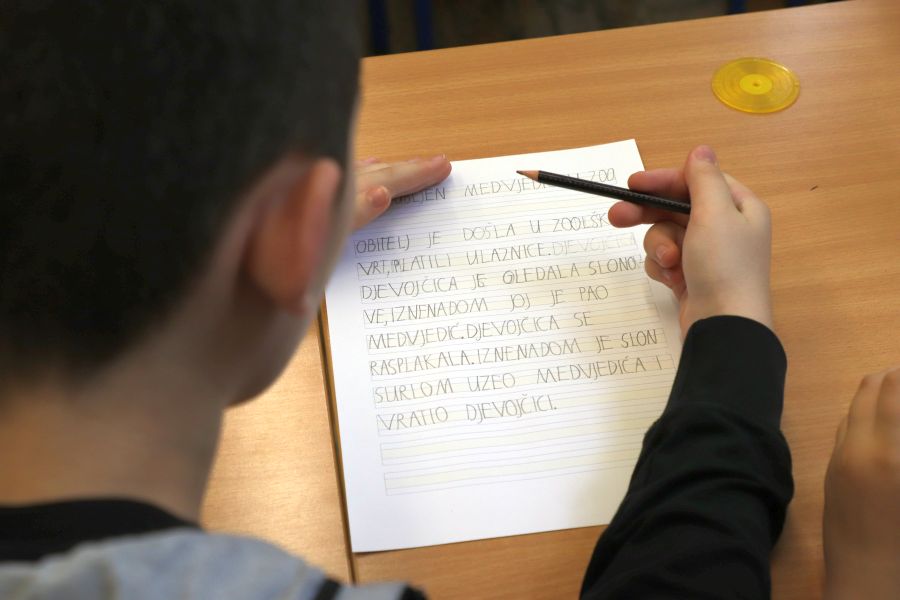 MEDVJEDIĆ U ZOO
OBITELJ JE DOŠLA U ZOOLŠK
VRT, PLATILI ULAZNICE. DJEVOJČICA
DJEVOJČICA JE GLEDALA SLONO
VE, IZNENADOM JOJ JE PAO
MEDVJEDIĆ. DJEVOJČICA SE
RASPLAKALA. IZNENADOM JE SLON
SURLOM UZEO MEDVJEDIĆA I
VRATIO DJEVOJČICI.